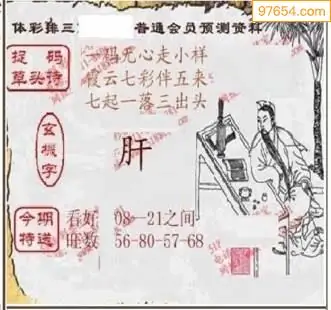 97654.com
体彩排三 普通会员预测资料
捉码
草头特
码咒心走小样
霞云七彩伴五来
七起一落三出头
玄机字
肝
今期特送
看好 08—21之间
旺数 56-80-57-68